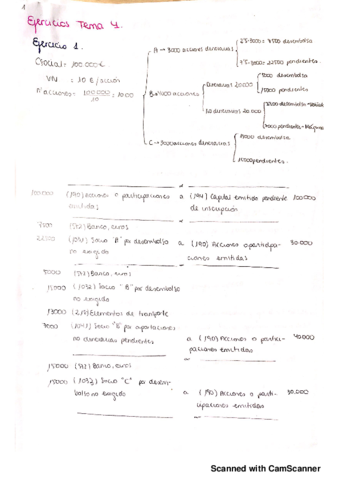 1
Ejercicios Tema 4.
Ejercicio 1.
Csocial = 100.000€
VN = 10 €/acción
nº acciones = 100.000/10 = 1000
A → 3000 acciones dinerarias
25·3000 = 7500 desembolsa
75·3000 = 22500 pendientes
B → 4000 acciones
Dinerarias 20000
5000 desembolsa
15000 pendientes
No dinerarias 20.000
C → 3000 acciones dinerarias
15000 desembolsa
15000 pendientes.
100000 (190) Acciones o participaciones emitidas a (194) Capital emitido pendiente de inscripción 100000
7500 (572) Banco, euros
22500 (1031) Socio "A" por desembolso no exigido a (190) Acciones o participaciones emitidas 30.000
5000 (572) Banco, euros
15000 (1032) Socio "B" por desembolso no exigido
13000 (218) Elementos de transporte
7000 Socio "B" por aportaciones no dinerarias pendientes a (190) Acciones o participaciones emitidas 40000
15000 (572) Banco, euros
15000 (1032) Socio "C" por desembolso no exigido a (190) Acciones o participaciones emitidas 30.000
Scanned with CamScanner